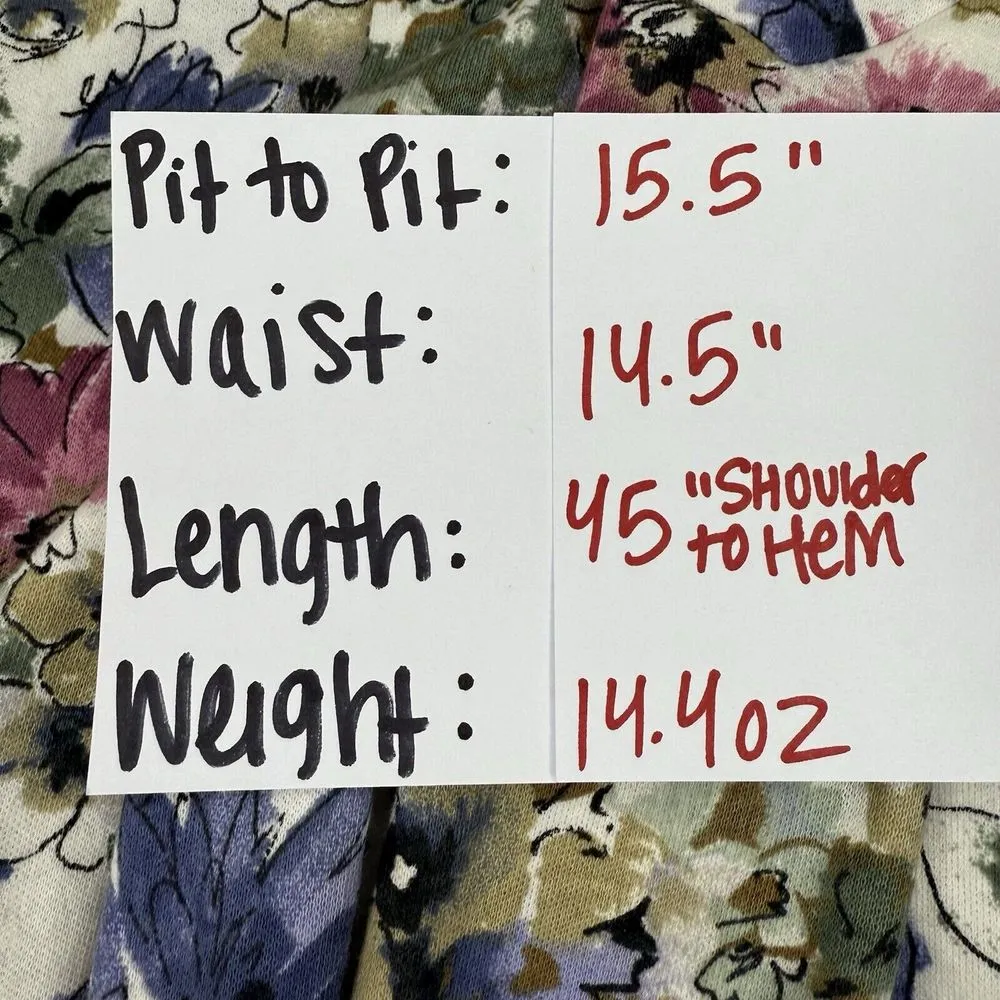 Pit to Pit: 15.5"
Waist: 14.5"
Length: 45 "SHoulder
to HeM
Weight: 14.4oz